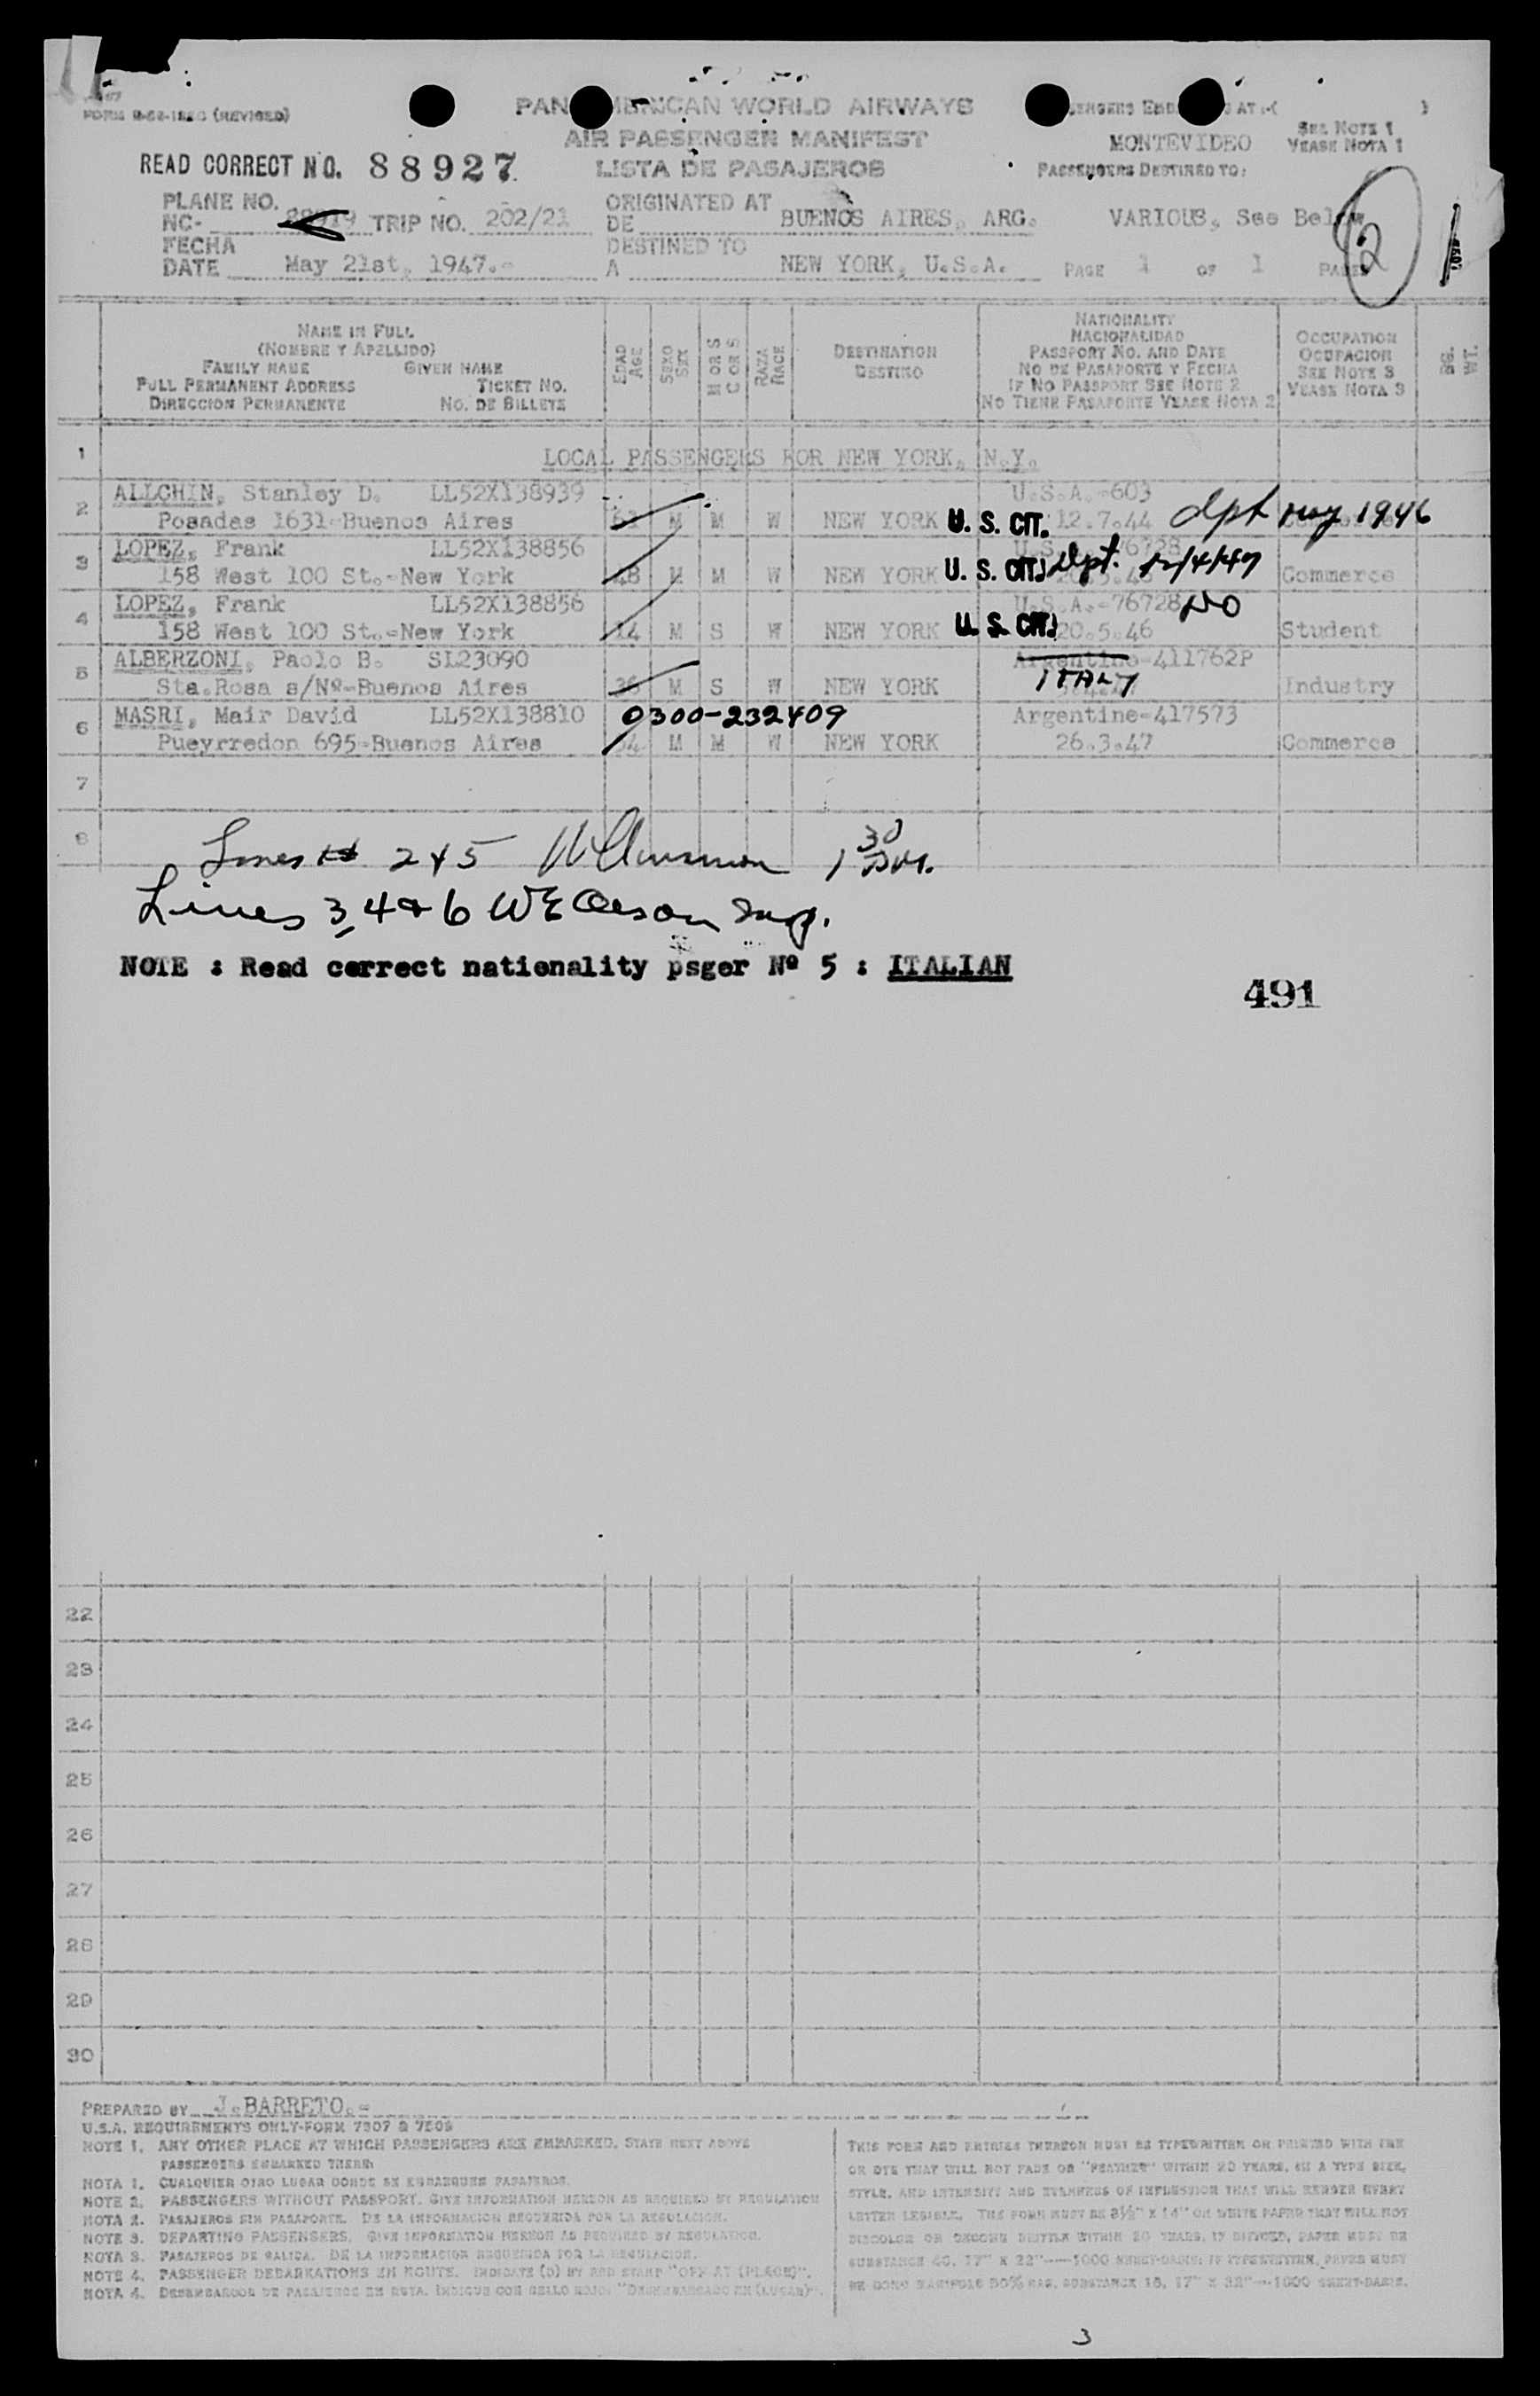 FORM (REVISED)
PAN AMERICAN WORLD AIRWAYS
AIR PASSENGER MANIFEST
LISTA DE PASAJEROS
SEE NOTE 1
MONTEVIDEO VEASE NOTA 1
PASSENGERS DESTINED TO:
READ CORRECT NO. 88927.
PLANE NO. ORIGINATED AT
NC- TRIP NO. 202/21 DE BUENOS AIRES, ARG. VARIOUS, See Below
FECHA DESTINED TO
DATE May 21st, 1947.- A NEW YORK, U.S.A. PAGE 1 OF 1 PAGES
2
NAME IN FULL
(NOMBRE Y APELLIDO)
FAMILY NAME GIVEN NAME
FULL PERMANENT ADDRESS TICKET NO.
DIRECCION PERMANENTE NO. DE BILLETE
EDAD AGE
SEXO SEX
M OR S
C OR S
RAZA RACE
DESTINATION
DESTINO
NATIONALITY
NACIONALIDAD
PASSPORT NO. AND DATE
NO DE PASAPORTE Y FECHA
IF NO PASSPORT SEE NOTE 2
NO TIENE PASAPORTE VEASE NOTA 2
OCCUPATION
OCUPACION
SEE NOTE 3
VEASE NOTA 3
WT.
1 LOCAL PASSENGERS FOR NEW YORK, N.Y.
2 ALLCHIN, Stanley D. LL52X138939 U.S.A.-603
Posadas 1631-Buenos Aires M M W NEW YORK U. S. CIT. 12.7.44 dpt May 1946
3 LOPEZ, Frank LL52X138856
158 West 100 St.-New York 48 M M W NEW YORK U. S. CIT. Dpt. Commerce
4 LOPEZ, Frank LL52X138856 U.S.A.-76728 NO
158 West 100 St.-New York 14 M S W NEW YORK U. S. CIT. 20.5.46 Student
5 ALBERZONI, Paolo B. SL23090 Argentine-411762P
Sta.Rosa s/Nº-Buenos Aires 36 M S W NEW YORK ITALY Industry
6 MASRI, Mair David LL52X138810 0300-232409 Argentine-417573
Pueyrredon 695-Buenos Aires M M W NEW YORK 26.3.47 Commerce
7
8
Lines 2 & 5 1 30 P.M.
Lines 3, 4 & 6 WE Insp.
NOTE : Read correct nationality psger Nº 5 : ITALIAN
491
22
23
24
25
26
27
28
29
30
PREPARED BY J.BARRETO.-
U.S.A. REQUIREMENTS ONLY-FORM 7507 & 7509
NOTE 1. ANY OTHER PLACE AT WHICH PASSENGERS ARE EMBARKED, STATE NEXT ABOVE
PASSENGERS EMBARKED THERE.
NOTA 1. CUALQUIER OTRO LUGAR DONDE SE EMBARQUEN PASAJEROS.
NOTE 2. PASSENGERS WITHOUT PASSPORT. GIVE INFORMATION HEREON AS REQUIRED BY REGULATION
NOTA 2. PASAJEROS SIN PASAPORTE. DE LA INFORMACION REQUERIDA POR LA REGULACION.
NOTE 3. DEPARTING PASSENGERS, GIVE INFORMATION HEREON AS REQUIRED BY REGULATION.
NOTA 3. PASAJEROS DE SALIDA. DE LA INFORMACION REQUERIDA POR LA REGULACION.
NOTE 4. PASSENGER DEBARKATIONS EN ROUTE. INDICATE (D) BY RED STAMP "OFF AT (PLACE)".
NOTA 4. DESEMBARCOS DE PASAJEROS EN RUTA. INDIQUE CON SELLO ROJO "DESEMBARCADO EN (LUGAR)".
THIS FORM AND ENTRIES THEREON MUST BE TYPEWRITTEN OR PRINTED WITH INK
OR DYE THAT WILL NOT FADE OR "FEATHER" WITHIN 20 YEARS, IN A TYPE SIZE,
STYLE, AND INTENSITY AND EVENNESS OF IMPRESSION THAT WILL RENDER EVERY
LETTER LEGIBLE. THE FORM MUST BE 8½" X 14" ON WHITE PAPER THAT WILL NOT
DISCOLOR OR BECOME BRITTLE WITHIN 20 YEARS. IF PAPER MUST BE
SUBSTANCE 40, 17" X 22"—1000 SHEET-BASIS; IF TYPEWRITTEN, PAPER MUST
BE 50% RAG, SUBSTANCE 16, 17" X 1000 SHEET-BASIS.
3